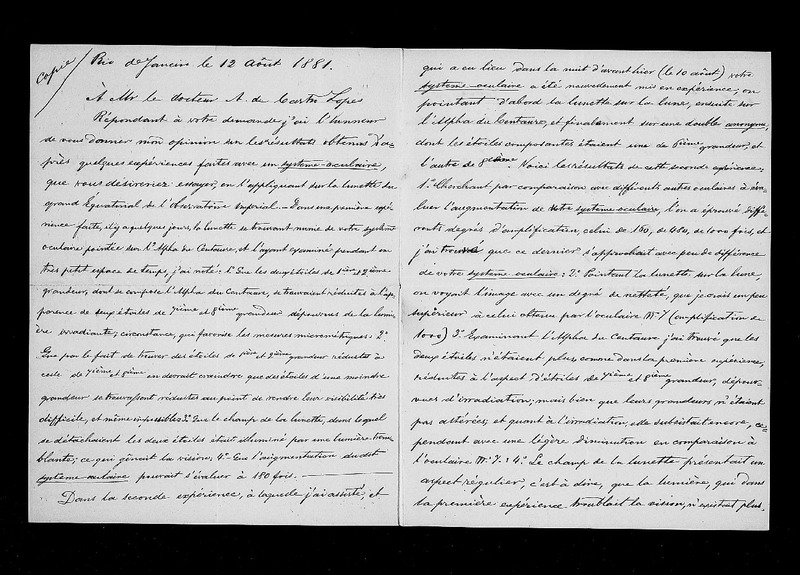 Copie
Rio de Janeiro le 12 Août 1881.
À Mr le docteur A. de Castro Lopes
Répondant à votre demande j'ai l'honneur
de vous donner mon opinion sur les résultats obtenus d'a-
près quelques expériences faites avec un système-oculaire,
que vous désireriez essayer, en l'appliquant sur la lunette du
grand Équatorial de l'Observatoire Impérial.—Dans une première expé-
rience faite, il y a quelques jours, la lunette se trouvant munie de votre système
oculaire pointée sur l'Alpha du Centaure, et l'ayant examiné pendant un
très petit espace de temps, j'ai noté: 1º Que les deux étoiles de 1ère et 2ième
grandeur, dont se compose l'Alpha du Centaure, se trouvaient réduites à l'ap-
parence de deux étoiles de 7ième et 8ième grandeur dépourvues de la lumi-
ère irradiante, circonstance, qui favorise les mesures micrométriques: 2º
Que par le fait de trouver des étoiles de 1ère et 2ième grandeur réduites à
celle de 7ième et 8ième on devrait craindre que des étoiles d'une moindre
grandeur se trouvassent réduites au point de rendre leur visibilité très
difficile, et même impossible: 3º Que le champ de la lunette, dans lequel
se détachaient les deux étoiles était illuminé par une lumière trem-
blante; ce qui gênait la vision: 4º Que l'augmentation du dit
système-oculaire pouvait s'évaluer à 180 fois.
Dans la seconde expérience, à laquelle j'ai assisté, et
qui a eu lieu dans la nuit d'avant hier (le 10 août) votre
système-oculaire a été nouvellement mis en expérience; on
pointant d'abord la lunette sur la lune, ensuite sur
l'Alpha du Centaure, et finalement sur une double anonyme,
dont les étoiles composantes étaient une de 6ième grandeur, et
l'autre de 8ième. Voici les résultats de cette seconde expérience,
1º Cherchant par comparaison avec différents autres oculaires à éva-
luer l'augmentation de votre système oculaire, l'on a éprouvé diffé-
rents degrés d'amplification, celui de 160, de 420, de 1000 fois, et
j'ai trouvé que ce dernier s'approchait avec peu de différence
de votre système oculaire: 2º Pointant la lunette sur la lune,
on voyait l'image avec un degré de netteté, que je crois un peu
supérieur à celui obtenu par l'oculaire Nº 7 (amplification de
1000) 3º Examinant l'Alpha du Centaure j'ai trouvé que les
deux étoiles n'étaient plus, comme dans la première expérience,
réduites à l'aspect d'étoiles de 7ième et 8ième grandeur, dépour-
vues d'irradiation; mais bien que leurs grandeurs n'étaient
pas altérées; et quant à l'irradiation, elle subsistait encore, ce-
pendant avec une légère diminution en comparaison à
l'oculaire Nº 7: 4º Le champ de la lunette présentait un
aspect régulier, c'est à dire, que la lumière, qui dans
la première expérience troublait la vision, n'existait plus.